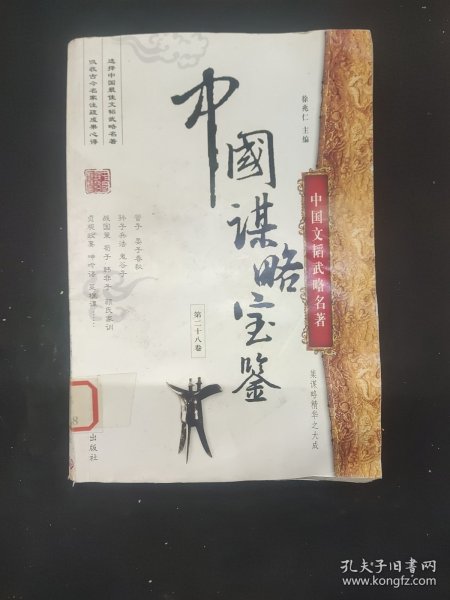 选择中国最佳文韬武略名著
汲取古今名家注疏成果心得
中國谋略宝鉴
徐兆仁 主编
中国文韬武略名著
集谋略精华之大成
第二十八卷
管子 晏子春秋
孙子兵法 鬼谷子
战国策 荀子 韩非子 颜氏家训
贞观政要 呻吟语
出版社
8
孔夫子旧书网
www.kongfz.com